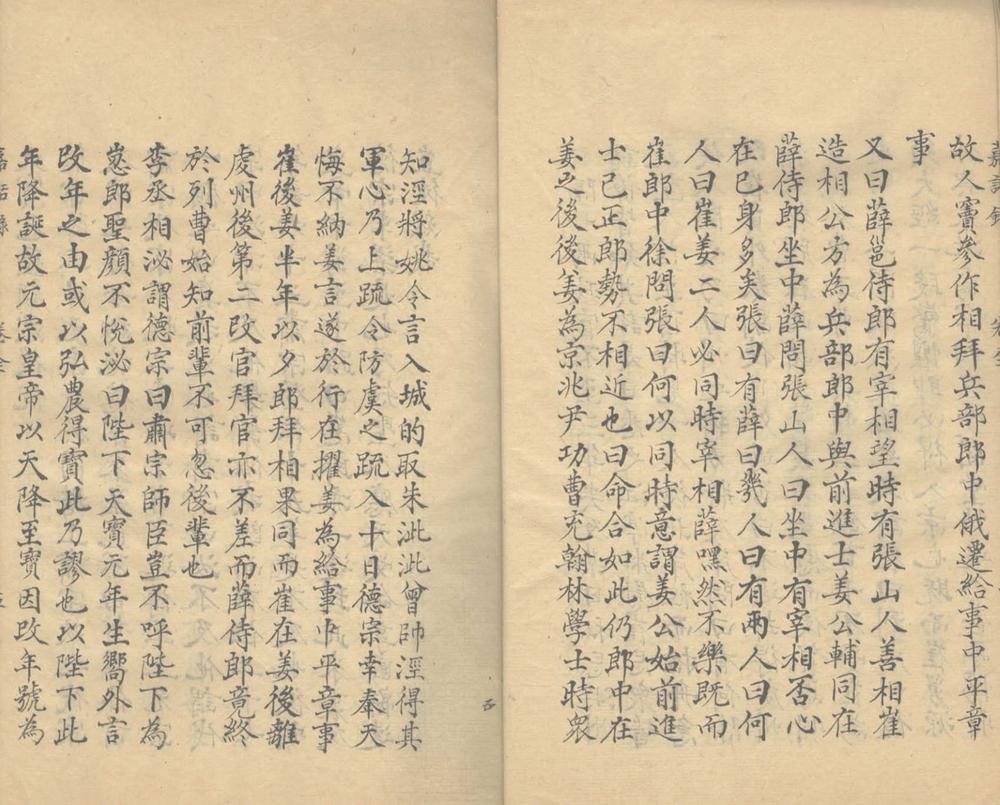 故人竇參作相拜兵部郎中俄遷給事中平章
事
又曰薛邕侍郎有宰相望時有張山人善相崔
造相公方為兵部郎中與前進士姜公輔同在
薛侍郎坐中薛問張山人曰坐中有宰相否心
在已身多矣張曰有薛曰幾人曰有兩人曰何
人曰崔姜二人必同時宰相薛嘿然不樂既而
崔郎中徐問張曰何以同時意謂姜公始前進
士已正郎勢不相近也曰命合如此仍郎中在
姜之後後姜為京兆尹功曹充翰林學士時衆
知涇將姚令言入城的取朱泚泚曾帥涇得其
軍心乃上疏令防虞之疏入十日德宗幸奉天
悔不納姜言遂於行在擢姜為給事中平章事
崔後姜半年以夕郎拜相果同而崔在姜後離
虔州後第二改官拜官亦不差而薛侍郎竟終
於列曹始知前輩不可忽後輩也
李丞相泌謂德宗曰肅宗師臣豈不呼陛下為
崽郎聖顏不悅泌曰陛下天寶元年生嚮外言
改年之由或以弘農得寶此乃謬也以陛下此
年降誕故元宗皇帝以天降至寶因改年號為